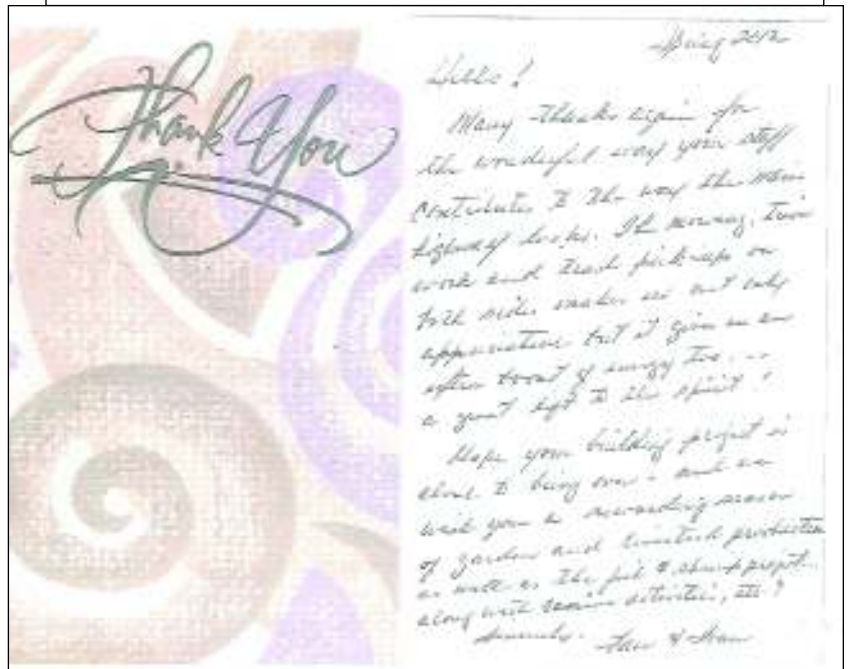 Thank You
Spring 2012
Hello!
Many thanks again for
the wonderful way your staff
contributes to the way the main
highway looks. The mowing, trim
work and trash pick-ups on
both sides makes us not only
appreciative but it gives us an
extra boost of energy too...
a great lift to the spirit!
Hope your building project is
close to being over - and we
wish you a rewarding season
of garden and production
as well as the project
along with activities, etc.
Sincerely,